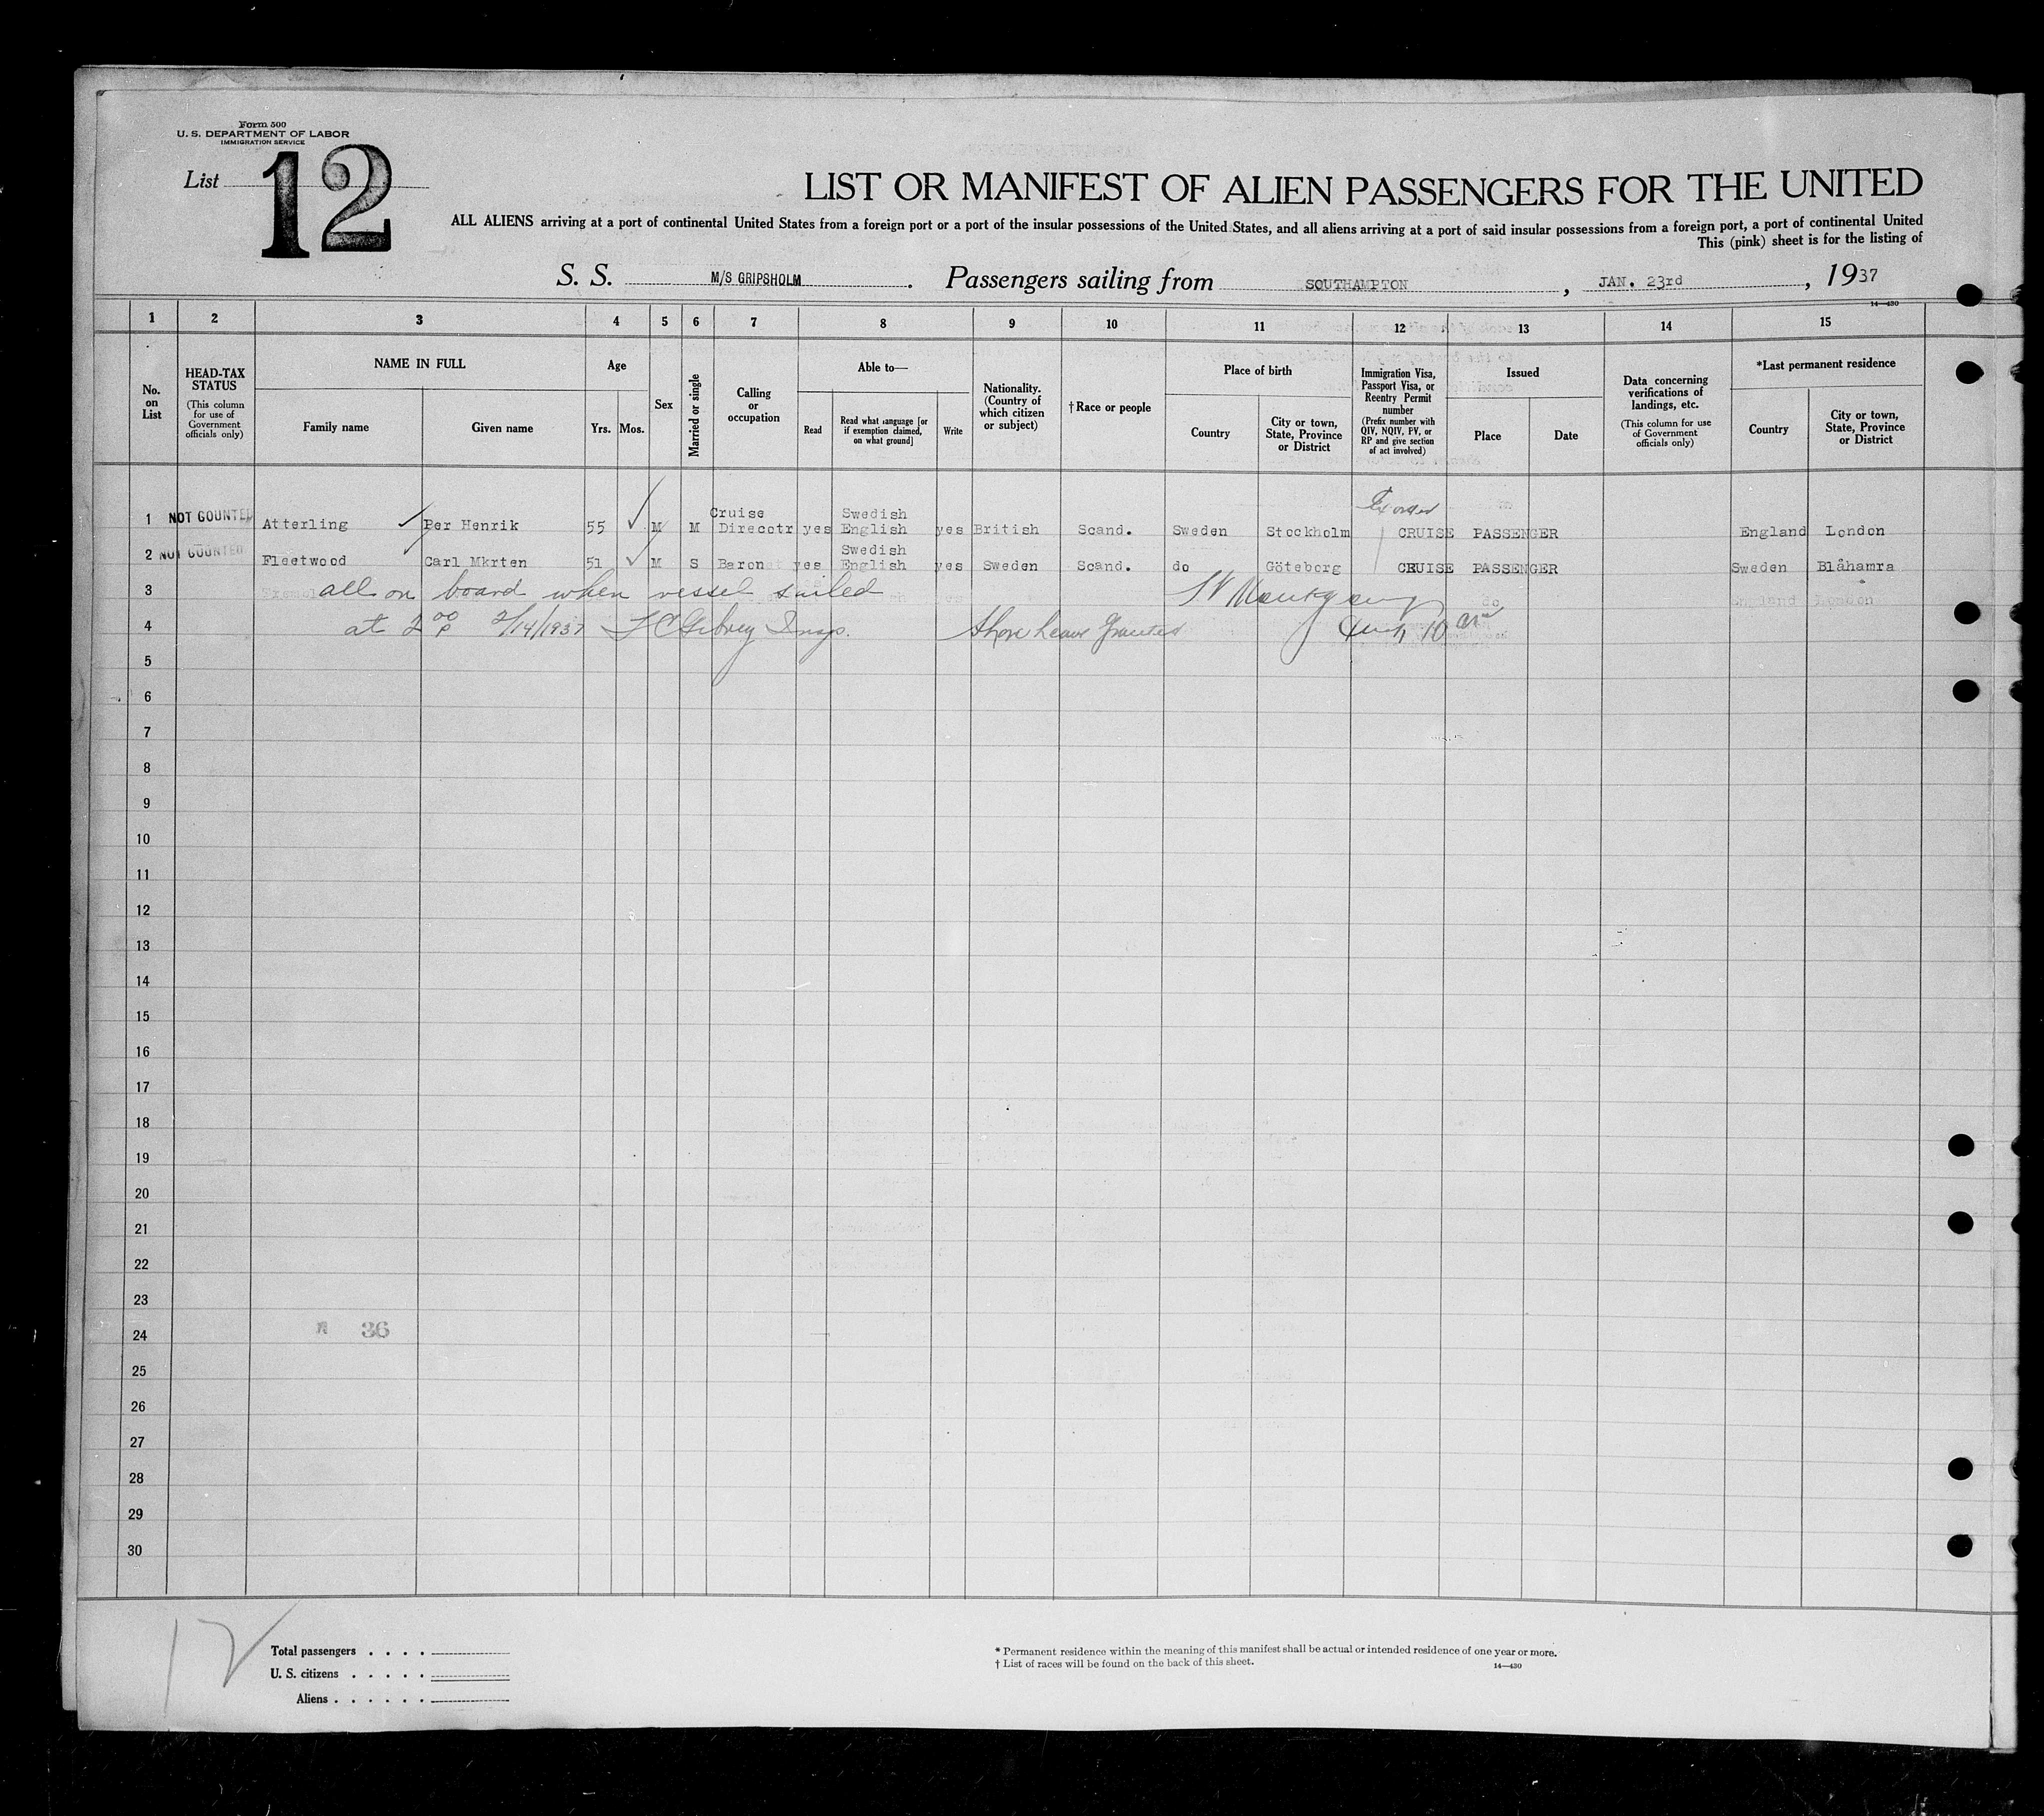 Form 500
U. S. DEPARTMENT OF LABOR
IMMIGRATION SERVICE
List 12
LIST OR MANIFEST OF ALIEN PASSENGERS FOR THE UNITED
ALL ALIENS arriving at a port of continental United States from a foreign port or a port of the insular possessions of the United States, and all aliens arriving at a port of said insular possessions from a foreign port, a port of continental United
This (pink) sheet is for the listing of
S. S. M/S GRIPSHOLM. Passengers sailing from SOUTHAMPTON, JAN. 23rd, 1937
14—430
1 2 3 4 5 6 7 8 9 10 11 12 13 14 15
No. on List
HEAD-TAX STATUS (This column for use of Government officials only)
NAME IN FULL
Family name Given name
Age
Yrs. Mos.
Sex
Married or single
Calling or occupation
Able to—
Read Read what language [or if exemption claimed, on what ground] Write
Nationality. (Country of which citizen or subject)
† Race or people
Place of birth
Country City or town, State, Province or District
Immigration Visa, Passport Visa, or Reentry Permit number (Prefix number with QIV, NQIV, PV, or RP and give section of act involved)
Issued
Place Date
Data concerning verifications of landings, etc. (This column for use of Government officials only)
*Last permanent residence
Country City or town, State, Province or District
1 NOT COUNTED Atterling Per Henrik 55 M M Cruise Direcotr yes Swedish English yes British Scand. Sweden Stockholm CRUISE PASSENGER England London
2 NOT COUNTED Fleetwood Carl Mkrten 51 M S Baron yes Swedish English yes Sweden Scand. do Göteborg CRUISE PASSENGER Sweden Blåhamra
3 all on board when vessel sailed
4 at 2 00 P 2/14/1937 Shore leave Granted
5
6
7
8
9
10
11
12
13
14
15
16
17
18
19
20
21
22
23
24 36
25
26
27
28
29
30
12
Total passengers . . . .
U. S. citizens . . . . .
Aliens . . . . . .
* Permanent residence within the meaning of this manifest shall be actual or intended residence of one year or more.
† List of races will be found on the back of this sheet.
14—430